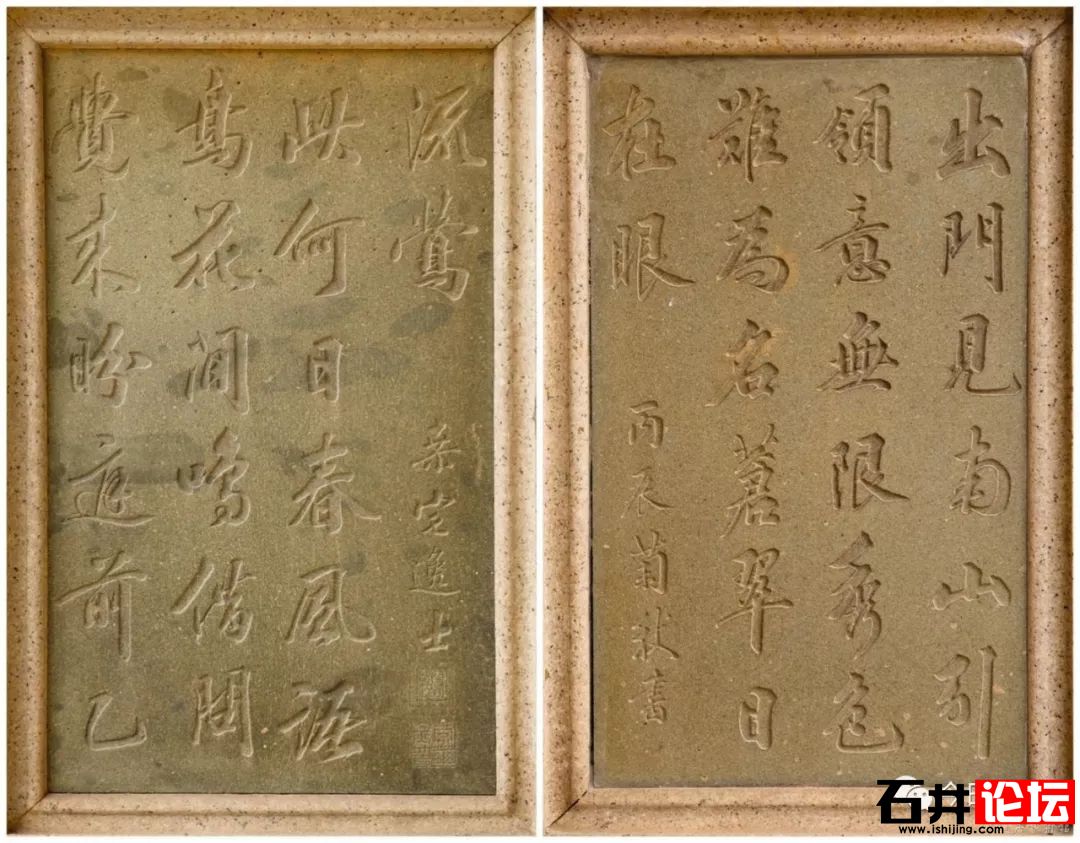 出門見南山引
領意無限秀色
難為名蒼翠日
在眼
丙辰菊秋書
覺來盼庭前乙
鳥花間鳴借問
此何日春風語
流鶯
逸士
石井论坛
www.ishijing.com